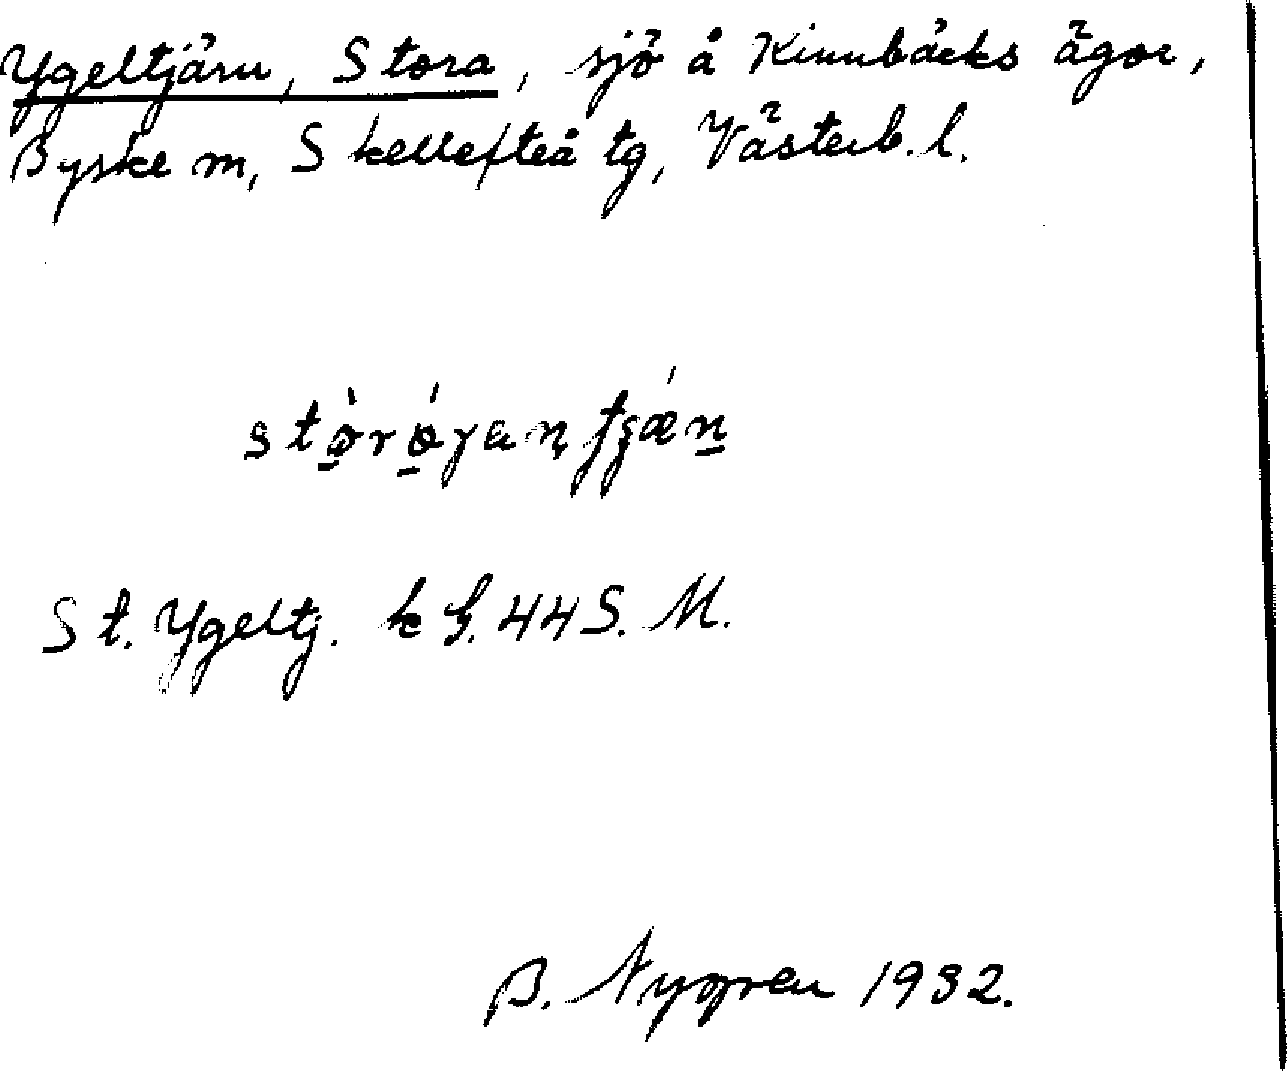 Ygeltjärn, Stora, sjö å Kinnbäcks ägor,
Byske sn, Skellefteå tg, Västerb. l.
St. Ygeltj. k bl. 44 S. M.
B. Nygren 1932.